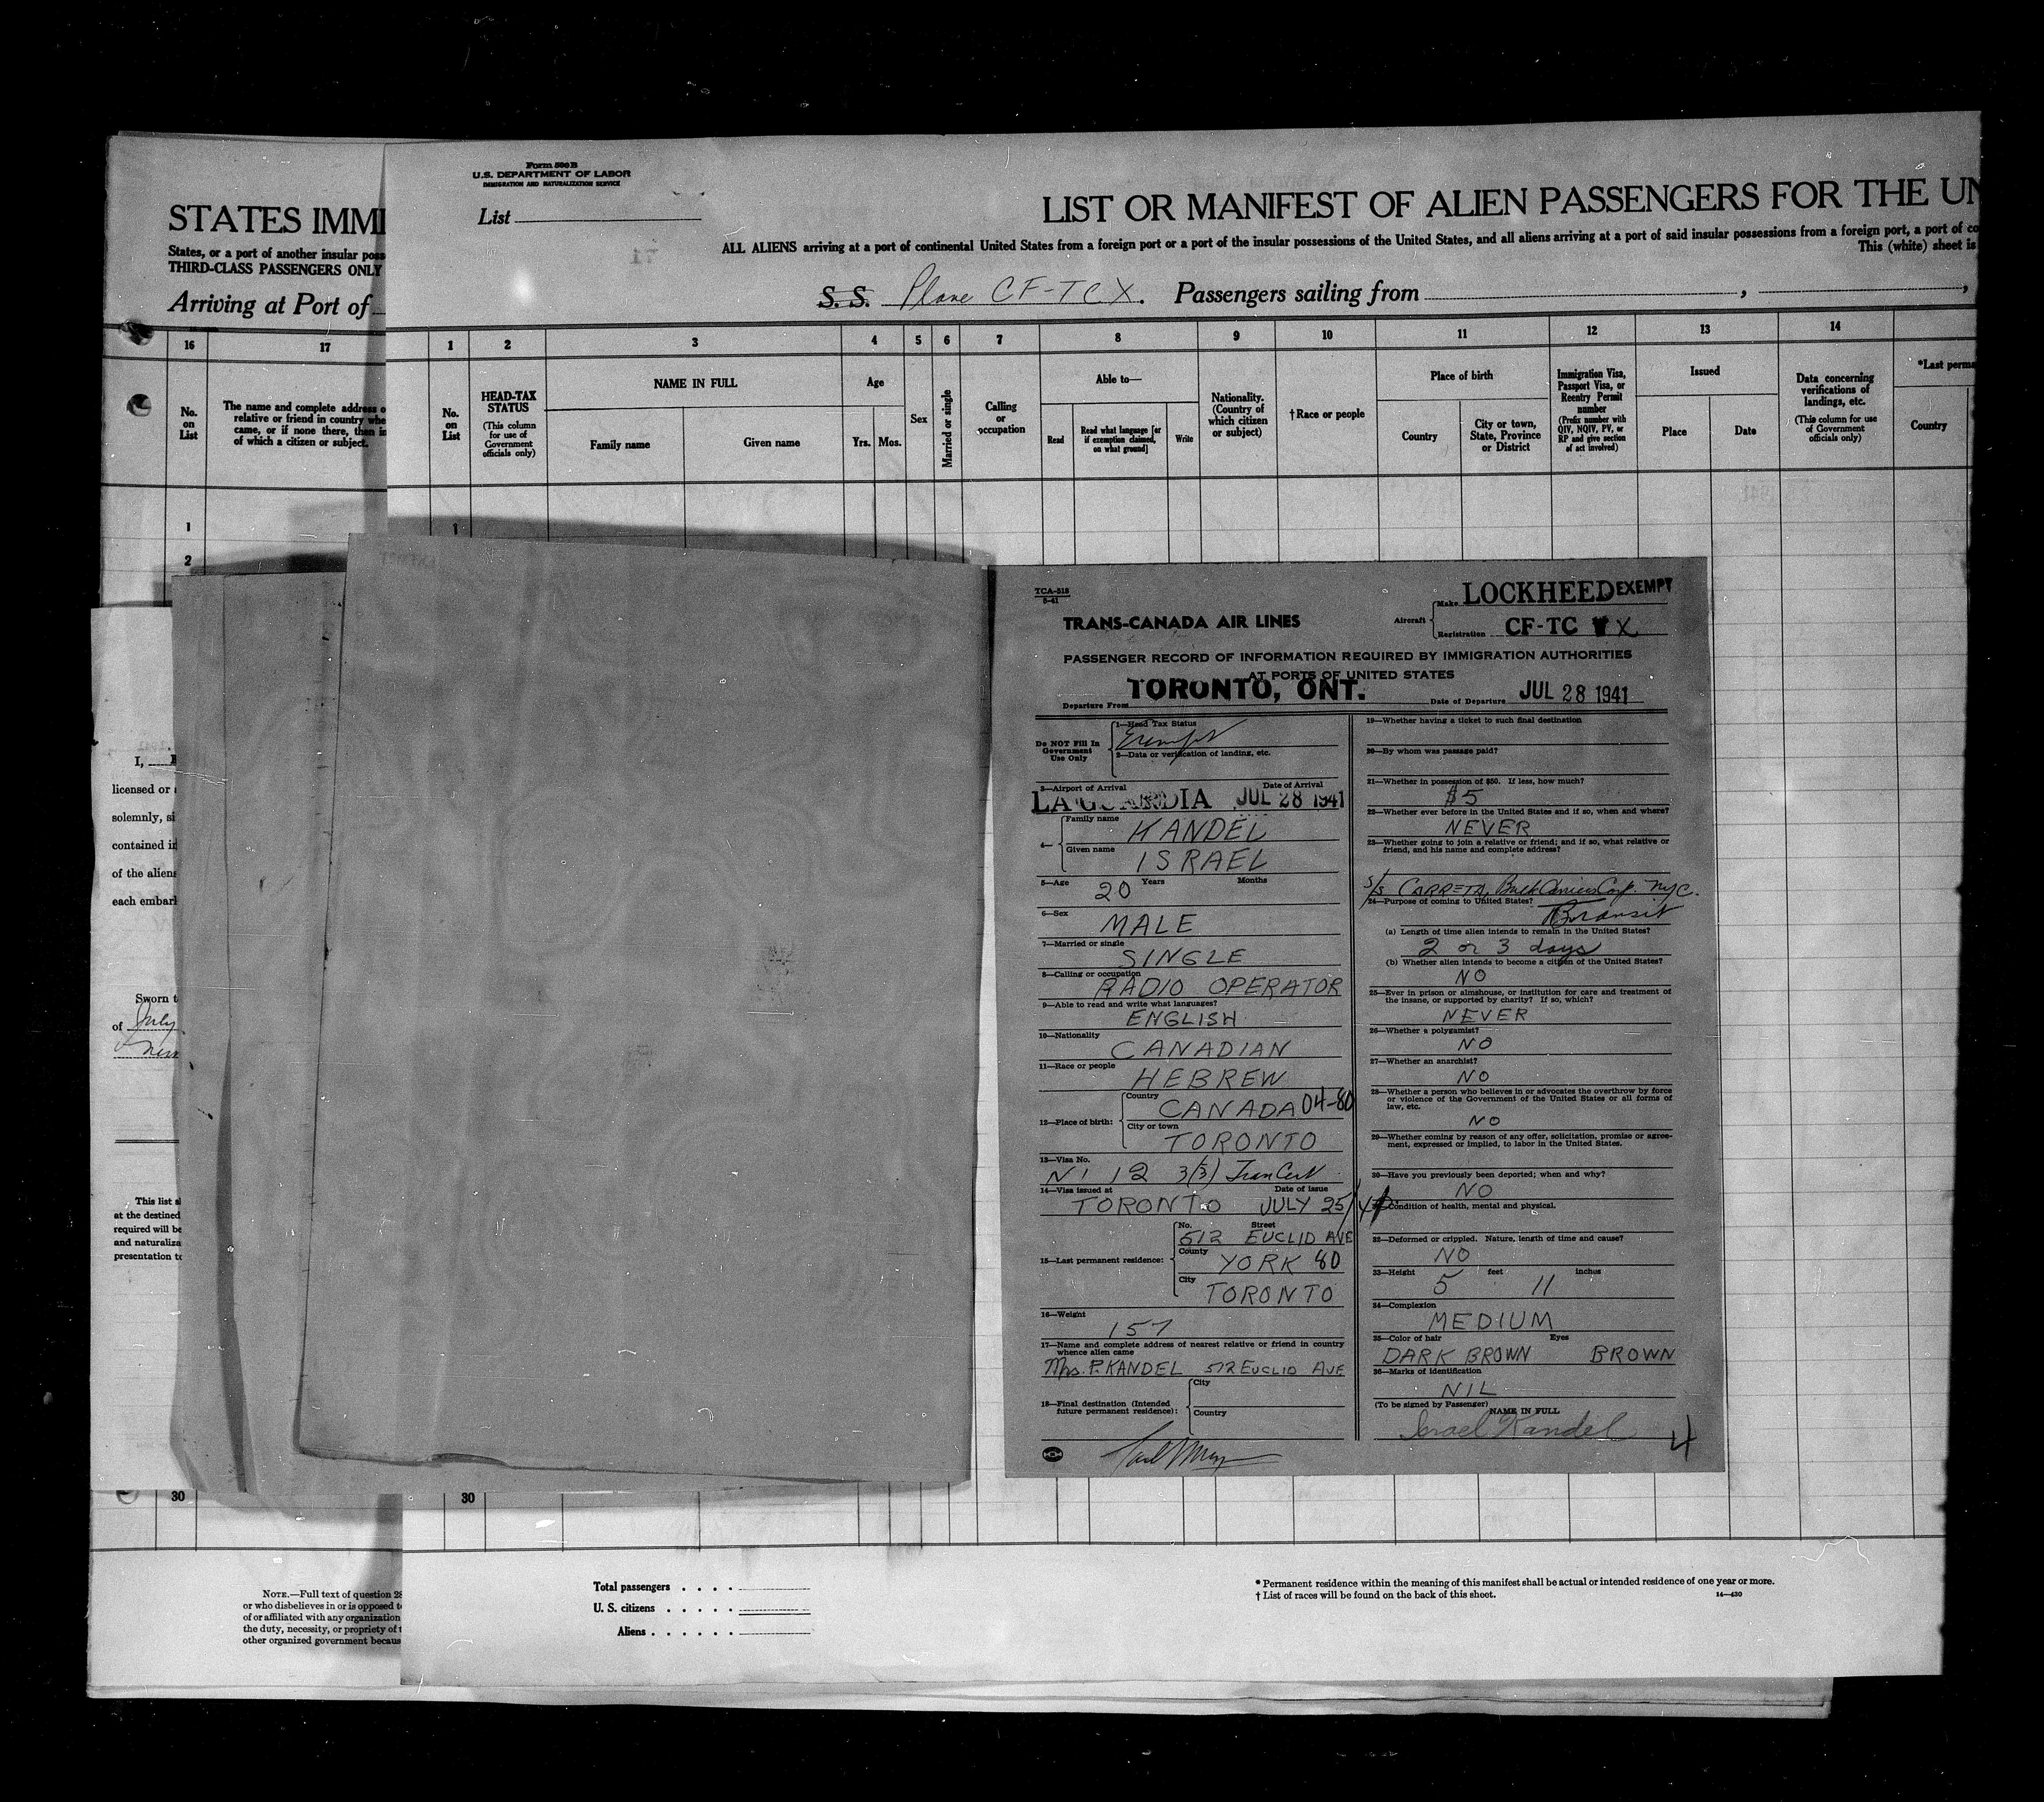 STATES IMMI
States, or a port of another insular poss
THIRD-CLASS PASSENGERS ONLY
Arriving at Port of
16 17
No. on List
The name and complete address o
relative or friend in country whe
came, or if none there, then in
of which a citizen or subject.
1
2
I,
licensed or
solemnly, si
contained in
of the aliens
each embark
Sworn t
of July
This list s
at the destined
required will be
and naturaliza
presentation to
30
NOTE.—Full text of question 28
or who disbelieves in or is opposed t
of or affiliated with any organization
the duty, necessity, or propriety of t
other organized government becaus
Form 500 B
U.S. DEPARTMENT OF LABOR
IMMIGRATION AND NATURALIZATION SERVICE
List
71
LIST OR MANIFEST OF ALIEN PASSENGERS FOR THE UN
ALL ALIENS arriving at a port of continental United States from a foreign port or a port of the insular possessions of the United States, and all aliens arriving at a port of said insular possessions from a foreign port, a port of co
This (white) sheet is
S. S. Plane CF-TCX. Passengers sailing from
1 2 3 4 5 6 7 8 9 10 11 12 13 14
No. on List
HEAD-TAX STATUS
(This column for use of Government officials only)
NAME IN FULL
Family name Given name
Age
Yrs. Mos.
Sex
Married or single
Calling or occupation
Able to—
Read
Read what language [or if exemption claimed, on what ground]
Write
Nationality. (Country of which citizen or subject)
†Race or people
Place of birth
Country
City or town, State, Province or District
Immigration Visa, Passport Visa, or Reentry Permit number
(Prefix number with QIV, NQIV, PV, or RP and give section of act involved)
Issued
Place Date
Data concerning verifications of landings, etc.
(This column for use of Government officials only)
*Last perma
Country
1
TCA-518
5-41
TRANS-CANADA AIR LINES
Aircraft
Make LOCKHEED EXEMPT
Registration CF-TC X
PASSENGER RECORD OF INFORMATION REQUIRED BY IMMIGRATION AUTHORITIES
AT PORTS OF UNITED STATES
Departure From TORONTO, ONT.
Date of Departure JUL 28 1941
Do NOT Fill In
Government
Use Only
1—Head Tax Status
Exempt
2—Data or verification of landing, etc.
3—Airport of Arrival Date of Arrival
LA GUARDIA JUL 28 1941
4—
Family name KANDEL
Given name ISRAEL
5—Age 20 Years Months
6—Sex MALE
7—Married or single
SINGLE
8—Calling or occupation
RADIO OPERATOR
9—Able to read and write what languages?
ENGLISH
10—Nationality
CANADIAN
11—Race or people
HEBREW
12—Place of birth:
Country
CANADA 04-80
City or town
TORONTO
13—Visa No.
12 3(3) Tran Cert
14—Visa issued at Date of issue
TORONTO JULY 25/41
15—Last permanent residence:
No. Street
512 EUCLID AVE
County YORK 80
City TORONTO
16—Weight
157
17—Name and complete address of nearest relative or friend in country
whence alien came
Mrs. P. KANDEL 512 EUCLID AVE
18—Final destination (Intended
future permanent residence):
City
Country
19—Whether having a ticket to such final destination
20—By whom was passage paid?
21—Whether in possession of $50. If less, how much?
$5
22—Whether ever before in the United States and if so, when and where?
NEVER
23—Whether going to join a relative or friend; and if so, what relative or
friend, and his name and complete address?
S/S CARRETA, Bulk Carriers Corp. NYC.
24—Purpose of coming to United States?
Transit
(a) Length of time alien intends to remain in the United States?
2 or 3 days
(b) Whether alien intends to become a citizen of the United States?
NO
25—Ever in prison or almshouse, or institution for care and treatment of
the insane, or supported by charity? If so, which?
NEVER
26—Whether a polygamist?
NO
27—Whether an anarchist?
NO
28—Whether a person who believes in or advocates the overthrow by force
or violence of the Government of the United States or all forms of
law, etc.
NO
29—Whether coming by reason of any offer, solicitation, promise or agree-
ment, expressed or implied, to labor in the United States.
30—Have you previously been deported; when and why?
NO
Condition of health, mental and physical.
32—Deformed or crippled. Nature, length of time and cause?
NO
33—Height 5 feet 11 inches
34—Complexion
MEDIUM
35—Color of hair Eyes
DARK BROWN BROWN
36—Marks of identification
NIL
(To be signed by Passenger)
NAME IN FULL
Israel Kandel
4
30
Total passengers
U. S. citizens
Aliens
* Permanent residence within the meaning of this manifest shall be actual or intended residence of one year or more.
† List of races will be found on the back of this sheet.
14—430